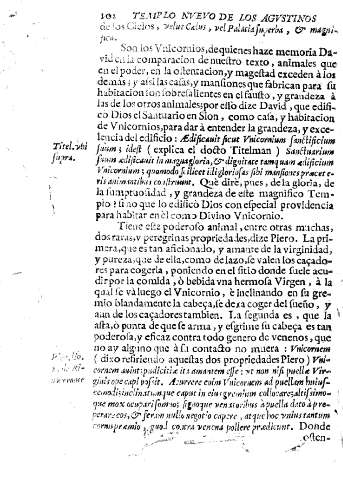 102 TEMPLO NUEVO DE LOS AGUSTINOS
de los Cielos, velut Cœlus, vel Palatia superba, & magni-
fica.
Son los Vnicornios, de quienes haze memoria Da-
vid en la comparacion de nuestro texto, animales que
en el poder, en la ostentacion, y magestad exceden à los
demàs; y assi las casas, y mansiones que fabrican para su
habitacion son sobresalientes en el fausto, y grandeza à
las de los otros animales; por esso dize David, que edifi-
cò Dios el Santuario en Sion, como casa, y habitacion
de Vnicornios, para dàr à entender la grandeza, y exce-
lencia del edificio: Ædificavit sicut Vnicornium sanctificium
Titel. vbi
supra.
suum; idest (explica el docto Titelman) Sanctuarium
suum ædificavit in magna gloria, & dignitate tamquam ædificium
Vnicornium; quomodo scilicet illi gloriosas sibi mansiones præ cæte-
ris animantibus costruunt. Què dirè, pues, de la gloria, de
la sumptuosidad, y grandeza de este magnifico Tem-
plo: si no que lo edificò Dios con especial providencia
para habitar en èl como Divino Vnicornio.
Tiene este poderoso animal, entre otras muchas,
dos raras, y peregrinas propriedades, dize Piero. La pri-
mera, que es tan aficionado, y amante de la virginidad,
y pureza, que de ella, como de lazo, se valen los caçado-
res para cogerla, poniendo en el sitio donde suele acu-
dir por la comida, ò bebida vna hermosa Virgen, à la
qual se và luego el Vnicornio, è inclinando en su gre-
mio blandamente la cabeça, se dexa coger del sueño, y
aun de los caçadores tambien. La segunda es, que la
asta, ò punta de que se arma, y esgrime su cabeça es tan
poderosa, y eficaz contra todo genero de venenos, que
no ay alguno que à su contacto no muera: Vnicornem
(dixo refiriendo aquestas dos propriedades Piero) Vni-
cornem aiunt pudicitiæ ita amantem esse: vt non nisi puellæ Vir-
ginis ope capi possit. Accurrere enim Vnicornem ad puellam huius-
que mox occupari somno; signoque venatoribus à puella dato
Donde
osten-